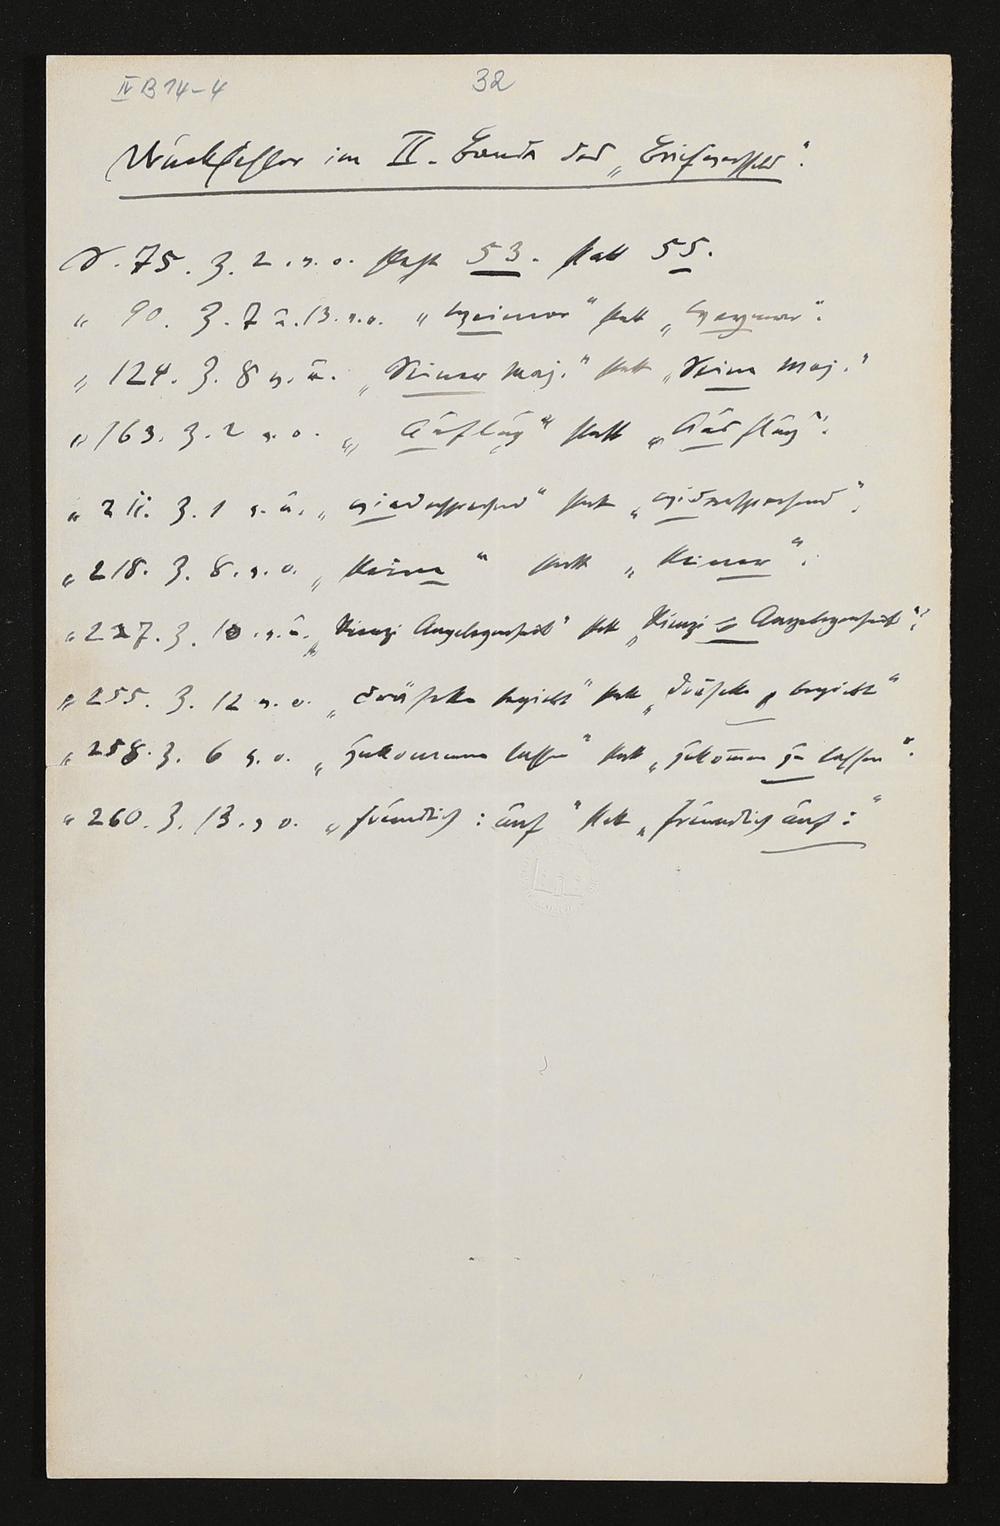 IV B 14-4
32
Druckfehler im II. Bande des „Briefwechsels".
S. 75. Z. 2. v. o. steht 53. statt 55.
„ 90. Z. 7 u. 13. v. o. „Weimar" statt „Weymar".
„ 124. Z. 8 v. u. „Seiner Maj." statt „Seine Maj."
„ 163. Z. 2 v. o. „Auflug" statt „Ausflug".
„ 211. Z. 1 v. u. „wiedersprechend" statt „widersprechend".
„ 218. Z. 8. v. o. „Keine" statt „Keiner".
„ 227. Z. 10. v. u. „Rienzi Angelegenheit" statt „Rienzi = Angelegenheit".
„ 255. Z. 12 v. o. „Dräseke begiebt" statt „Dräseke, begiebt"
„ 258. Z. 6 v. o. „zukommen lassen" statt „zukom̄en zu lassen".
„ 260. Z. 13. v. o. „freundlich: auf" statt „freundlich auf:"